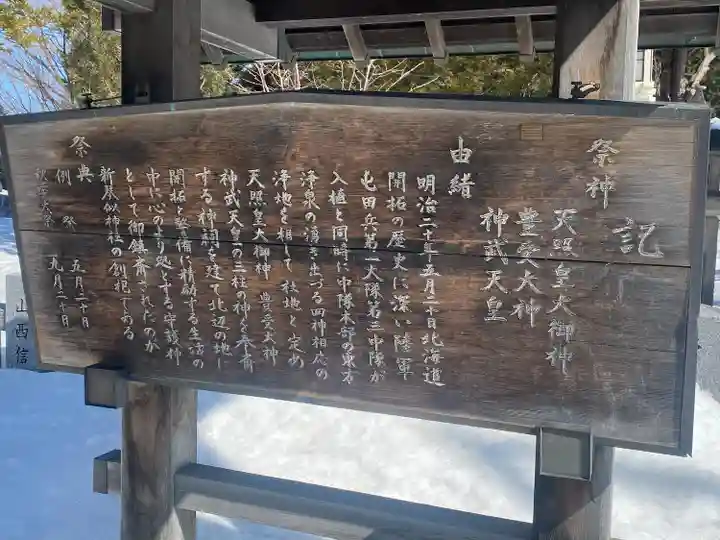 記
祭神
天照皇大御神
豊受大神
神武天皇
由緒
明治二十年五月二十日北海道
開拓の歴史に深い陸軍
屯田兵第一大隊第三中隊が
入植と同時に中隊本部の東方
浄泉の湧き出づる四神相応の
浄地を相して社地と定め
天照皇大御神 豊受大神
神武天皇の三柱の神を奉斎
する神祠を建て北辺の地に
開拓と警備に精励する生活の
中に心より処とする守護神
として御鎮斎されたのが
新琴似神社の創祀である
祭典
例祭 五月二十日
秋季大祭 九月二十日
山西信